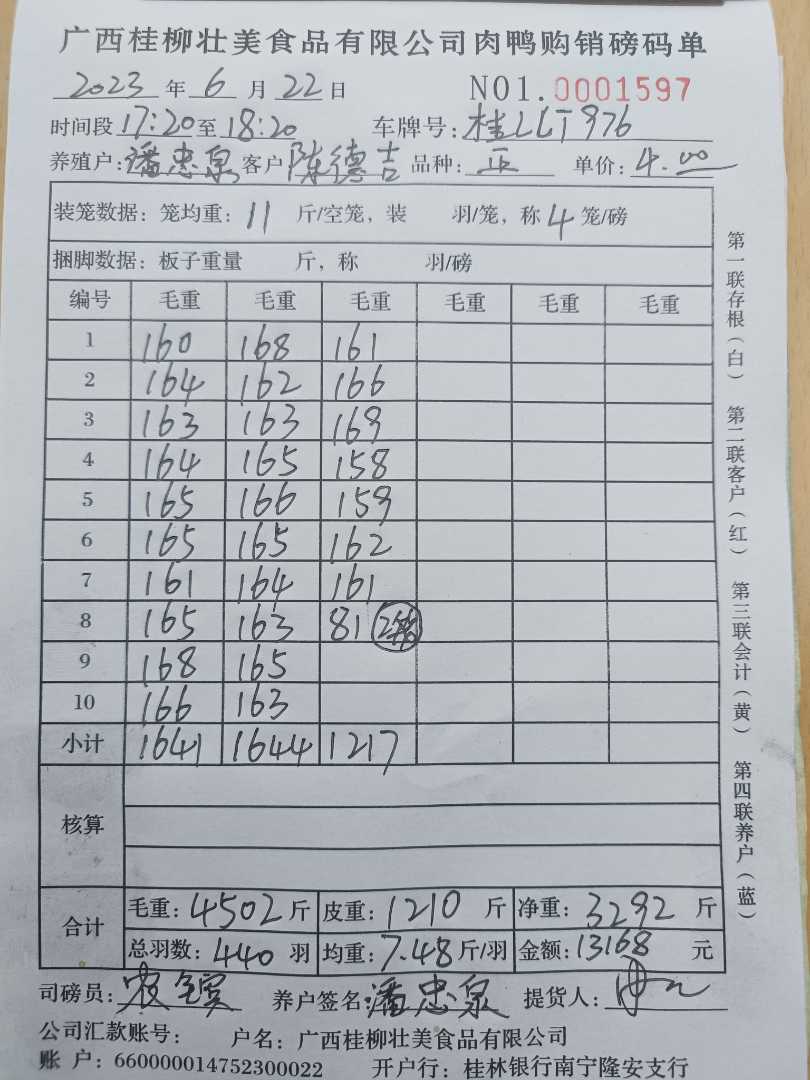 广西桂柳壮美食品有限公司肉鸭购销磅码单
2023 年 6 月 22 日 NO1.0001597
时间段 17:20 至 18:20 车牌号: 桂LLT976
养殖户: 潘忠泉 客户 陈德吉 品种: 正 单价: 4.00
装笼数据: 笼均重: 11 斤/空笼, 装 羽/笼, 称 4 笼/磅
捆脚数据: 板子重量 斤, 称 羽/磅
编号 毛重 毛重 毛重 毛重 毛重 毛重
1 160 168 161
2 164 162 166
3 163 163 169
4 164 165 158
5 165 166 159
6 165 165 162
7 161 164 161
8 165 163 81 2笼
9 168 165
10 166 163
小计 1641 1644 1217
核算
合计
毛重: 4502 斤 皮重: 1210 斤 净重: 3292 斤
总羽数: 440 羽 均重: 7.48 斤/羽 金额: 13168 元
司磅员: 养户签名: 潘忠泉 提货人:
公司汇款账号: 户名: 广西桂柳壮美食品有限公司
账 户: 660000014752300022 开户行: 桂林银行南宁隆安支行
第一联存根(白) 第二联客户(红) 第三联会计(黄) 第四联养户(蓝)